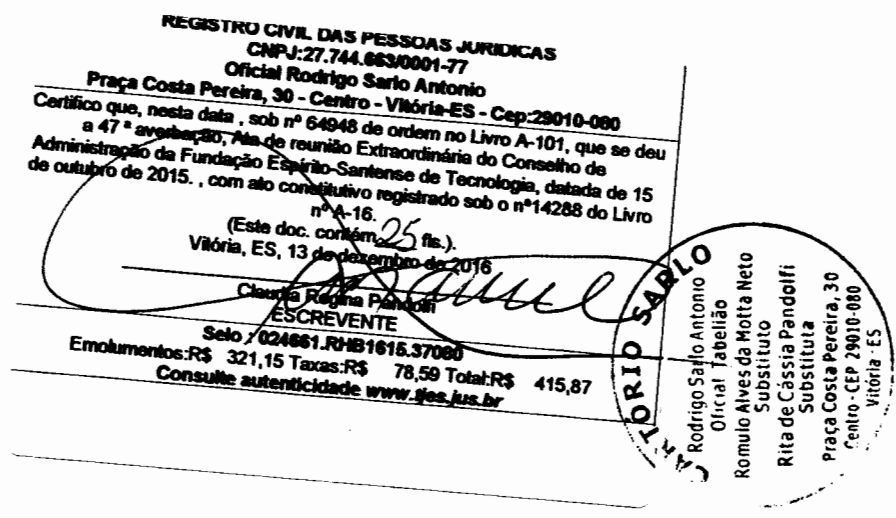 REGISTRO CIVIL DAS PESSOAS JURIDICAS
CNPJ:27.744.663/0001-77
Oficial Rodrigo Sarlo Antonio
Praça Costa Pereira, 30 - Centro - Vitória-ES - Cep:29010-080
Certifico que, nesta data , sob nº 64948 de ordem no Livro A-101, que se deu
a 47 ª averbação, Ata de reunião Extraordinária do Conselho de
Administração da Fundação Espírito-Santense de Tecnologia, datada de 15
de outubro de 2015. , com ato constitutivo registrado sob o nº14288 do Livro
nº A-16.
(Este doc. contém 25 fls.).
Vitória, ES, 13 de dezembro de 2016
Claudia Regina Pandolfi
ESCREVENTE
Selo : 024661.RHB1615.37080
Emolumentos:R$ 321,15 Taxas:R$ 78,59 Total:R$ 415,87
Consulte autenticidade www.tjes.jus.br
CARTORIO SARLO
Rodrigo Sarlo Antonio
Oficial Tabelião
Romulo Alves da Motta Neto
Substituto
Rita de Cássia Pandolfi
Substituta
Praça Costa Pereira, 30
Centro - CEP 29010-080
Vitória - ES